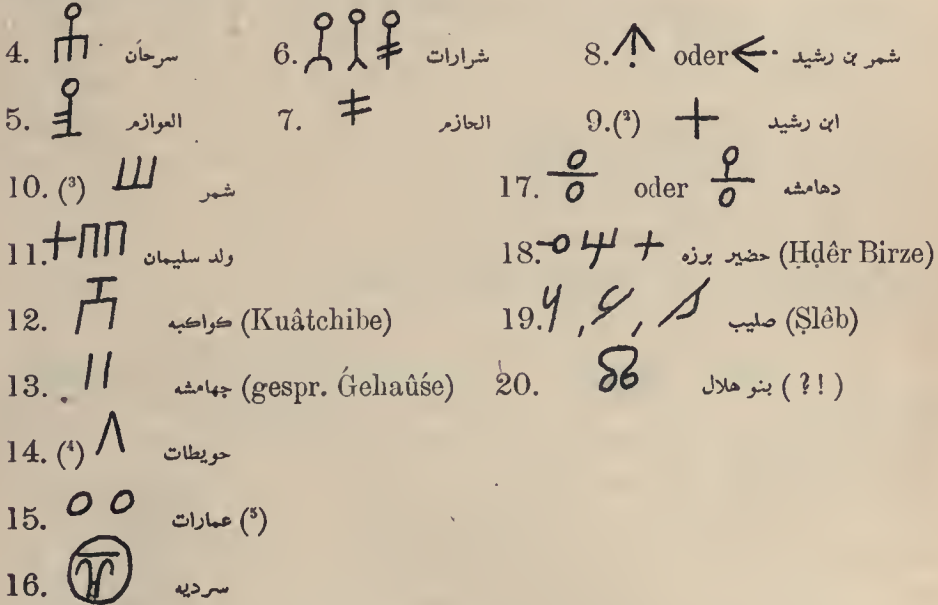 4. سرحان 6. شرارات 8. oder شمر بن رشيد
5. العوازم 7. الحازم 9.(²) ابن رشيد
10. (³) شمر 17. oder دهامشه
11. ولد سليمان 18. حضير برزه (Ḥḍêr Birze)
12. كواكبه (Kuâtchibe) 19. , , صليب (Ṣlêb)
13. جهامشه (gespr. Ǵehaûśe) 20. بنو هلال (?!)
14. (⁴) حويطات
15. عمارات (⁵)
16. سرديه